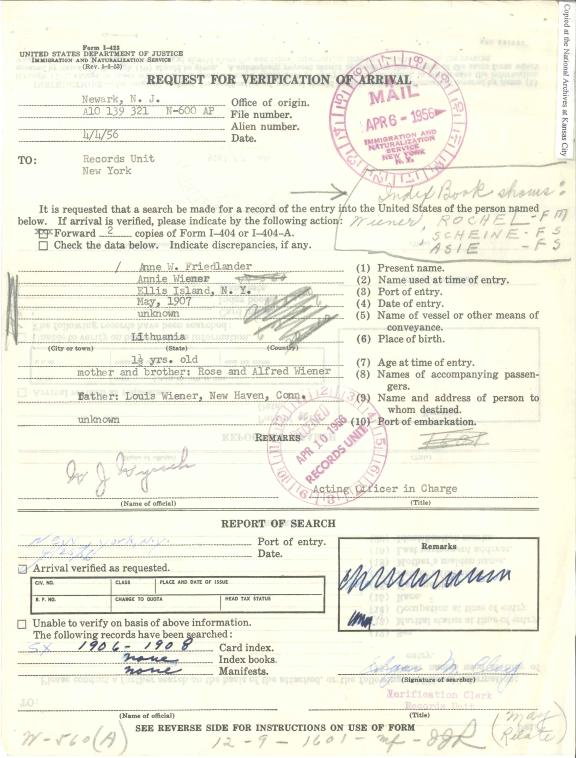 Copied at the National Archives at Kansas City
Form I-423
UNITED STATES DEPARTMENT OF JUSTICE
IMMIGRATION AND NATURALIZATION SERVICE
(Rev. 1-5-53)
REQUEST FOR VERIFICATION OF ARRIVAL
MAIL
APR 6 - 1956
IMMIGRATION AND
NATURALIZATION
SERVICE
NEW YORK
N. Y.
Newark, N. J. Office of origin.
A10 139 321 N-600 AP File number.
Alien number.
4/4/56 Date.
TO: Records Unit
New York
Index Book shows:
Wiener, ROCHEL - FM
" SCHEINE - FS
" ASIE - FS
It is requested that a search be made for a record of the entry into the United States of the person named
below. If arrival is verified, please indicate by the following action:
Forward 2 copies of Form I-404 or I-404-A.
Check the data below. Indicate discrepancies, if any.
Anne W. Friedlander (1) Present name.
Annie Wiener (2) Name used at time of entry.
Ellis Island, N. Y. (3) Port of entry.
May, 1907 (4) Date of entry.
unknown (5) Name of vessel or other means of
conveyance.
Lithuania (6) Place of birth.
(City or town) (State) (Country)
1½ yrs. old (7) Age at time of entry.
mother and brother: Rose and Alfred Wiener (8) Names of accompanying passen-
gers.
Father: Louis Wiener, New Haven, Conn. (9) Name and address of person to
whom destined.
unknown (10) Port of embarkation.
RECEIVED
APR 10 1956
RECORDS UNIT
REMARKS
Acting Officer in Charge
(Name of official) (Title)
REPORT OF SEARCH
New York, N.Y. Port of entry.
Date.
Arrival verified as requested.
CIV. NO. CLASS PLACE AND DATE OF ISSUE
R. P. NO. CHARGE TO QUOTA HEAD TAX STATUS
Remarks
Unable to verify on basis of above information.
The following records have been searched:
SX 1906 - 1908 Card index.
none Index books.
none Manifests.
(Signature of searcher)
Verification Clerk
Records Unit
(Name of official) (Title)
SEE REVERSE SIDE FOR INSTRUCTIONS ON USE OF FORM
W-560(A)
12-9-1601-mf-
(May
Relate)